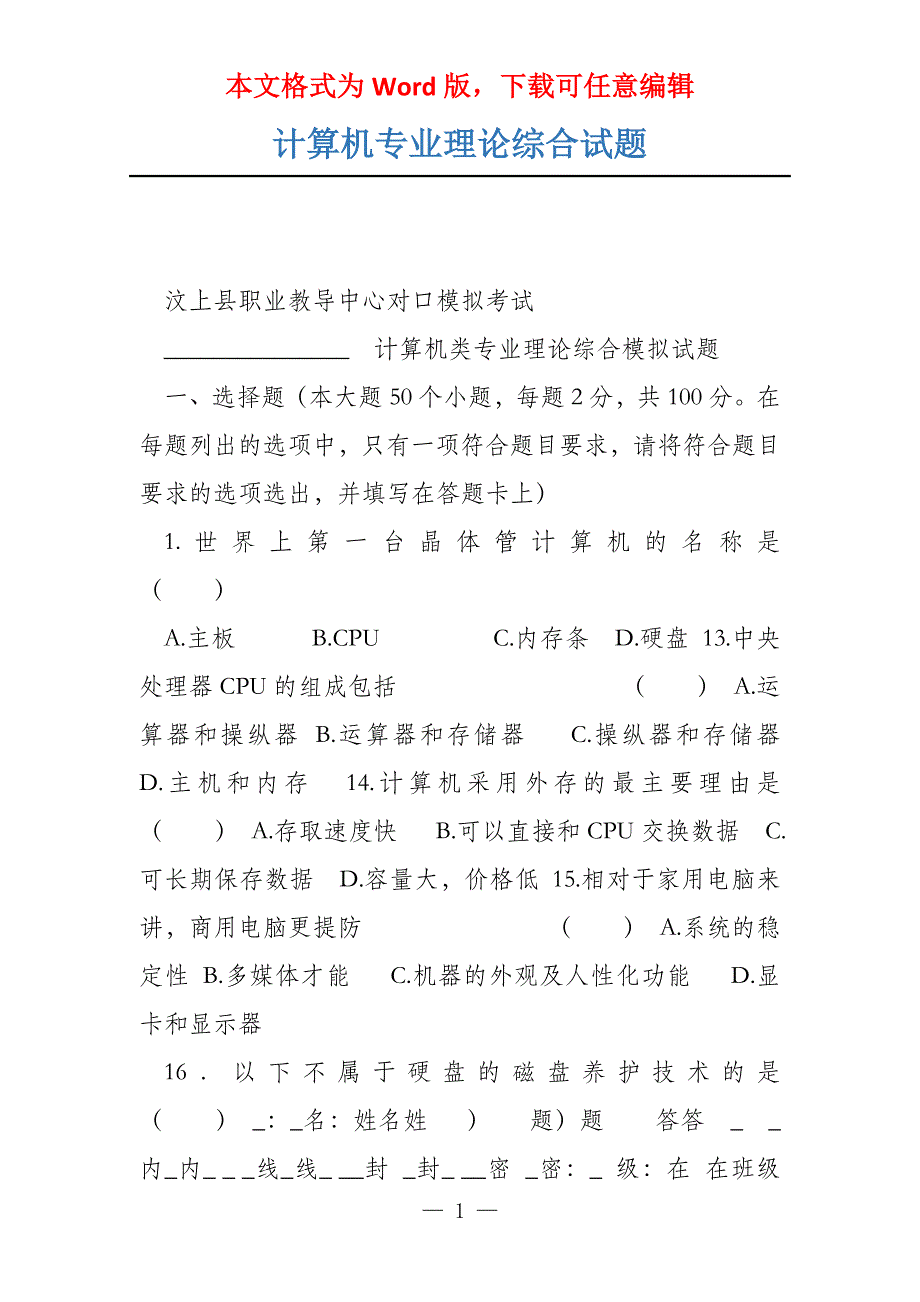 本文格式为 Word 版，下载可任意编辑
计算机专业理论综合试题
汶上县职业教导中心对口模拟考试
_______________ 计算机类专业理论综合模拟试题
一、选择题（本大题 50 个小题，每题 2 分，共 100 分。在
每题列出的选项中，只有一项符合题目要求，请将符合题目
要求的选项选出，并填写在答题卡上）
1. 世界上第一台晶体管计算机的名称是
（　　）
A.主板 B.CPU C.内存条 D.硬盘 13.中央
处理器 CPU 的组成包括 （　　） A.运
算器和操纵器 B.运算器和存储器 C.操纵器和存储器
D.主机和内存 14.计算机采用外存的最主要理由是
（　　） A.存取速度快 B.可以直接和 CPU 交换数据 C.
可长期保存数据 D.容量大，价格低 15.相对于家用电脑来
讲，商用电脑更提防 （　　） A.系统的稳
定性 B.多媒体才能 C.机器的外观及人性化功能 D.显
卡和显示器
16．以下不属于硬盘的磁盘养护技术的是
（　　） _：_名：姓名姓 ） 题）题 答答 _ _
内_内_ _ _线_线_ __封 _封_ __密 _密：_ 级：在 在班级
— 1 —